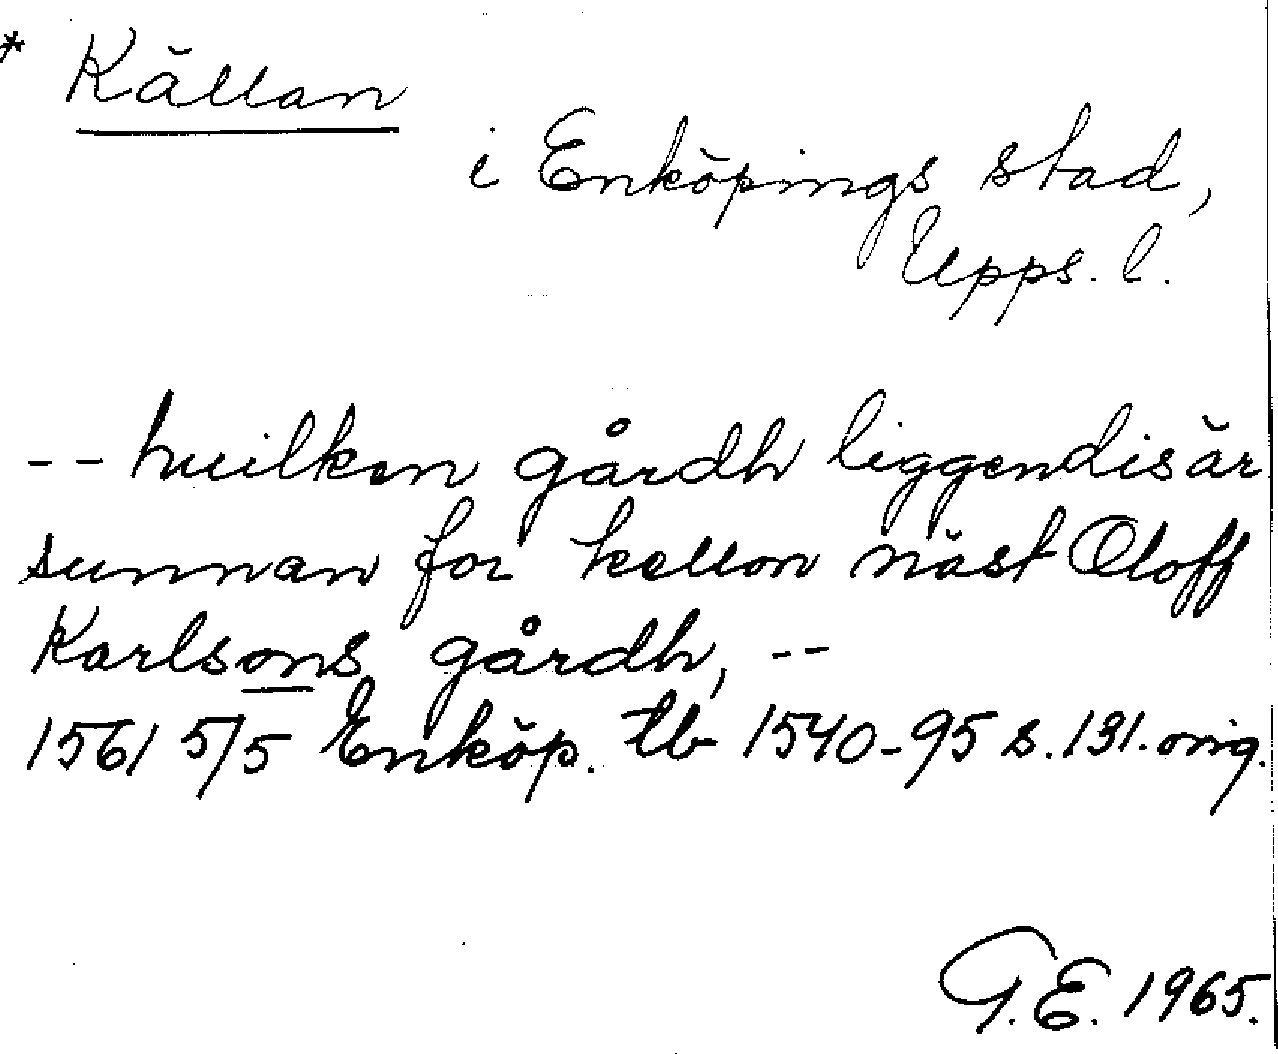 * Källan
i Enköpings stad,
Upps. l.
-- huilken gårdh liggendis är
sunnan for kellon näst Oloff
Karlsons gårdh, --
1561 5/5 Enköp. tb 1540-95 s. 131. orig.
G.E. 1965.